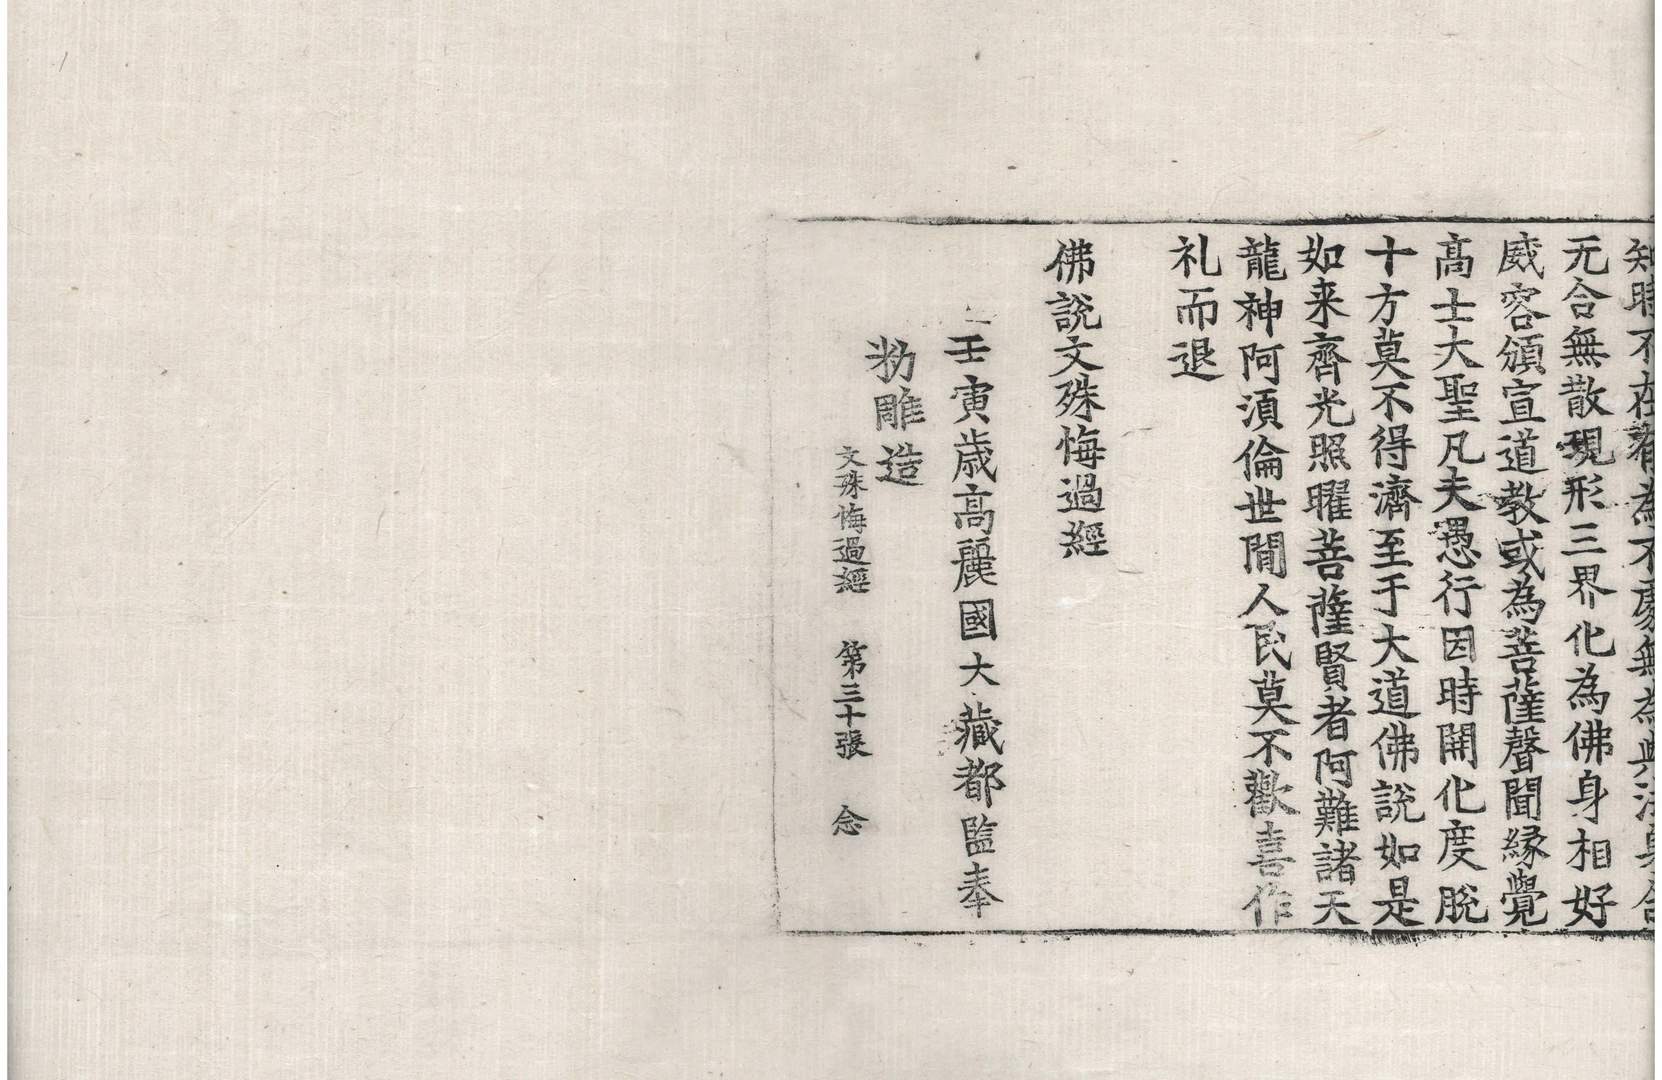 知時不在著為不處無為典法身合
无合無散現形三界化為佛身相好
威容頒宣道教或為菩薩聲聞緣覺
高士大聖凡夫愚行因時開化度脫
十方莫不得濟至于大道佛說如是
如来齊光照曜菩薩賢者阿難諸天
龍神阿須倫世間人民莫不歡喜作
礼而退
佛說文殊悔過經
壬寅歲高麗國大藏都監奉
勑雕造
文殊悔過經 第三十張 念